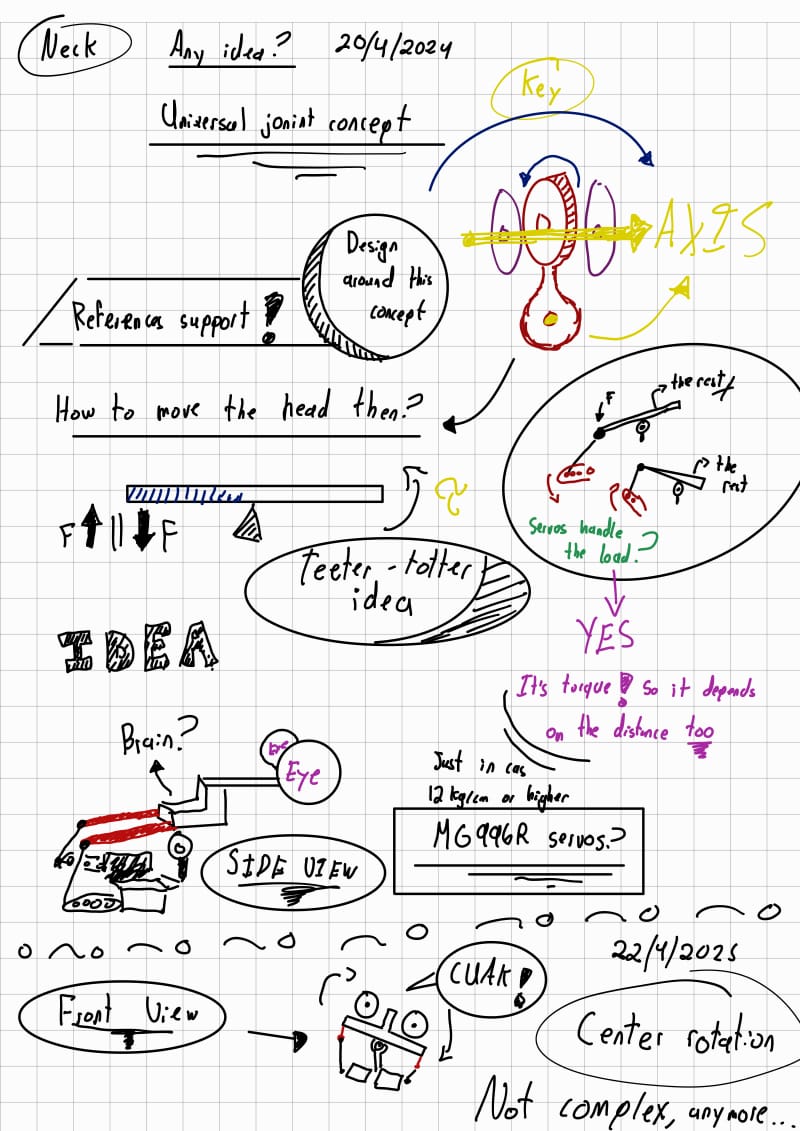 Neck
Any idea?
20/4/2024
Key
Universal jonint concept
AXIS
Design
around this
concept
References support!
How to move the head then?
F
the rest
the
rest
Servos handle
the load?
F || F
Teeter-totter
idea
YES
IDEA
It's torque! so it depends
on the distance too
Brain?
Eye
Eye
Just in cas
12 kg/cm or higher
MG996R servos?
SIDE VIEW
22/4/2025
CUAK!
Front View
Center rotation
Not complex, anymore...